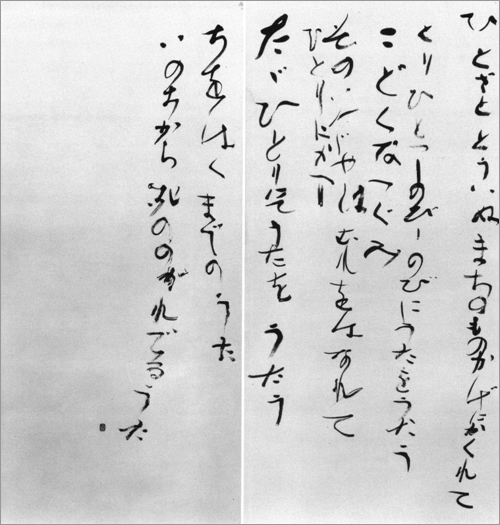 ひとざと とうい ぬまちのものかげにかくれて
とりひとつしのびしのびにうたをうたう
こどくなつぐみ
そのいんじやはむれをはなれて
ひとりにかへり
たゞひとりにてうたを うたう
ちをはく までのうた
いのちから 死ののがれでるうた